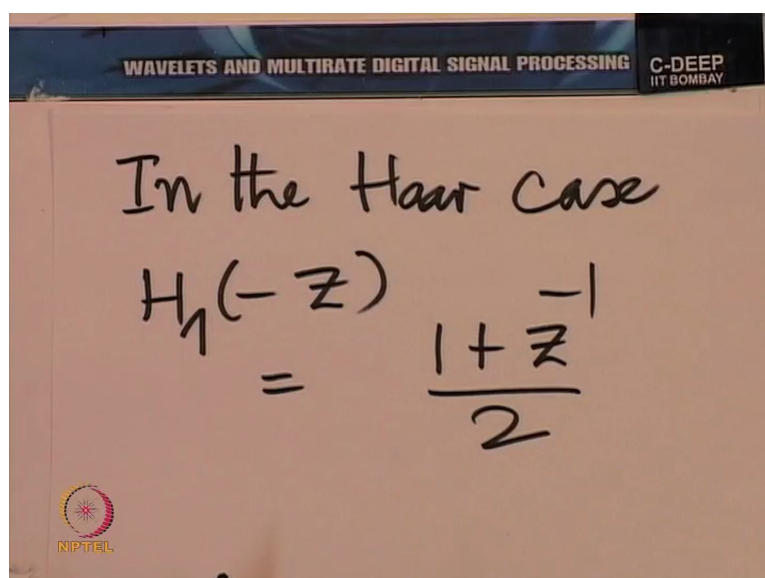 WAVELETS AND MULTIRATE DIGITAL SIGNAL PROCESSING
C-DEEP
IIT BOMBAY
In the Haar case
H₁(-Z)
= (1 + Z⁻¹)/2
NPTEL